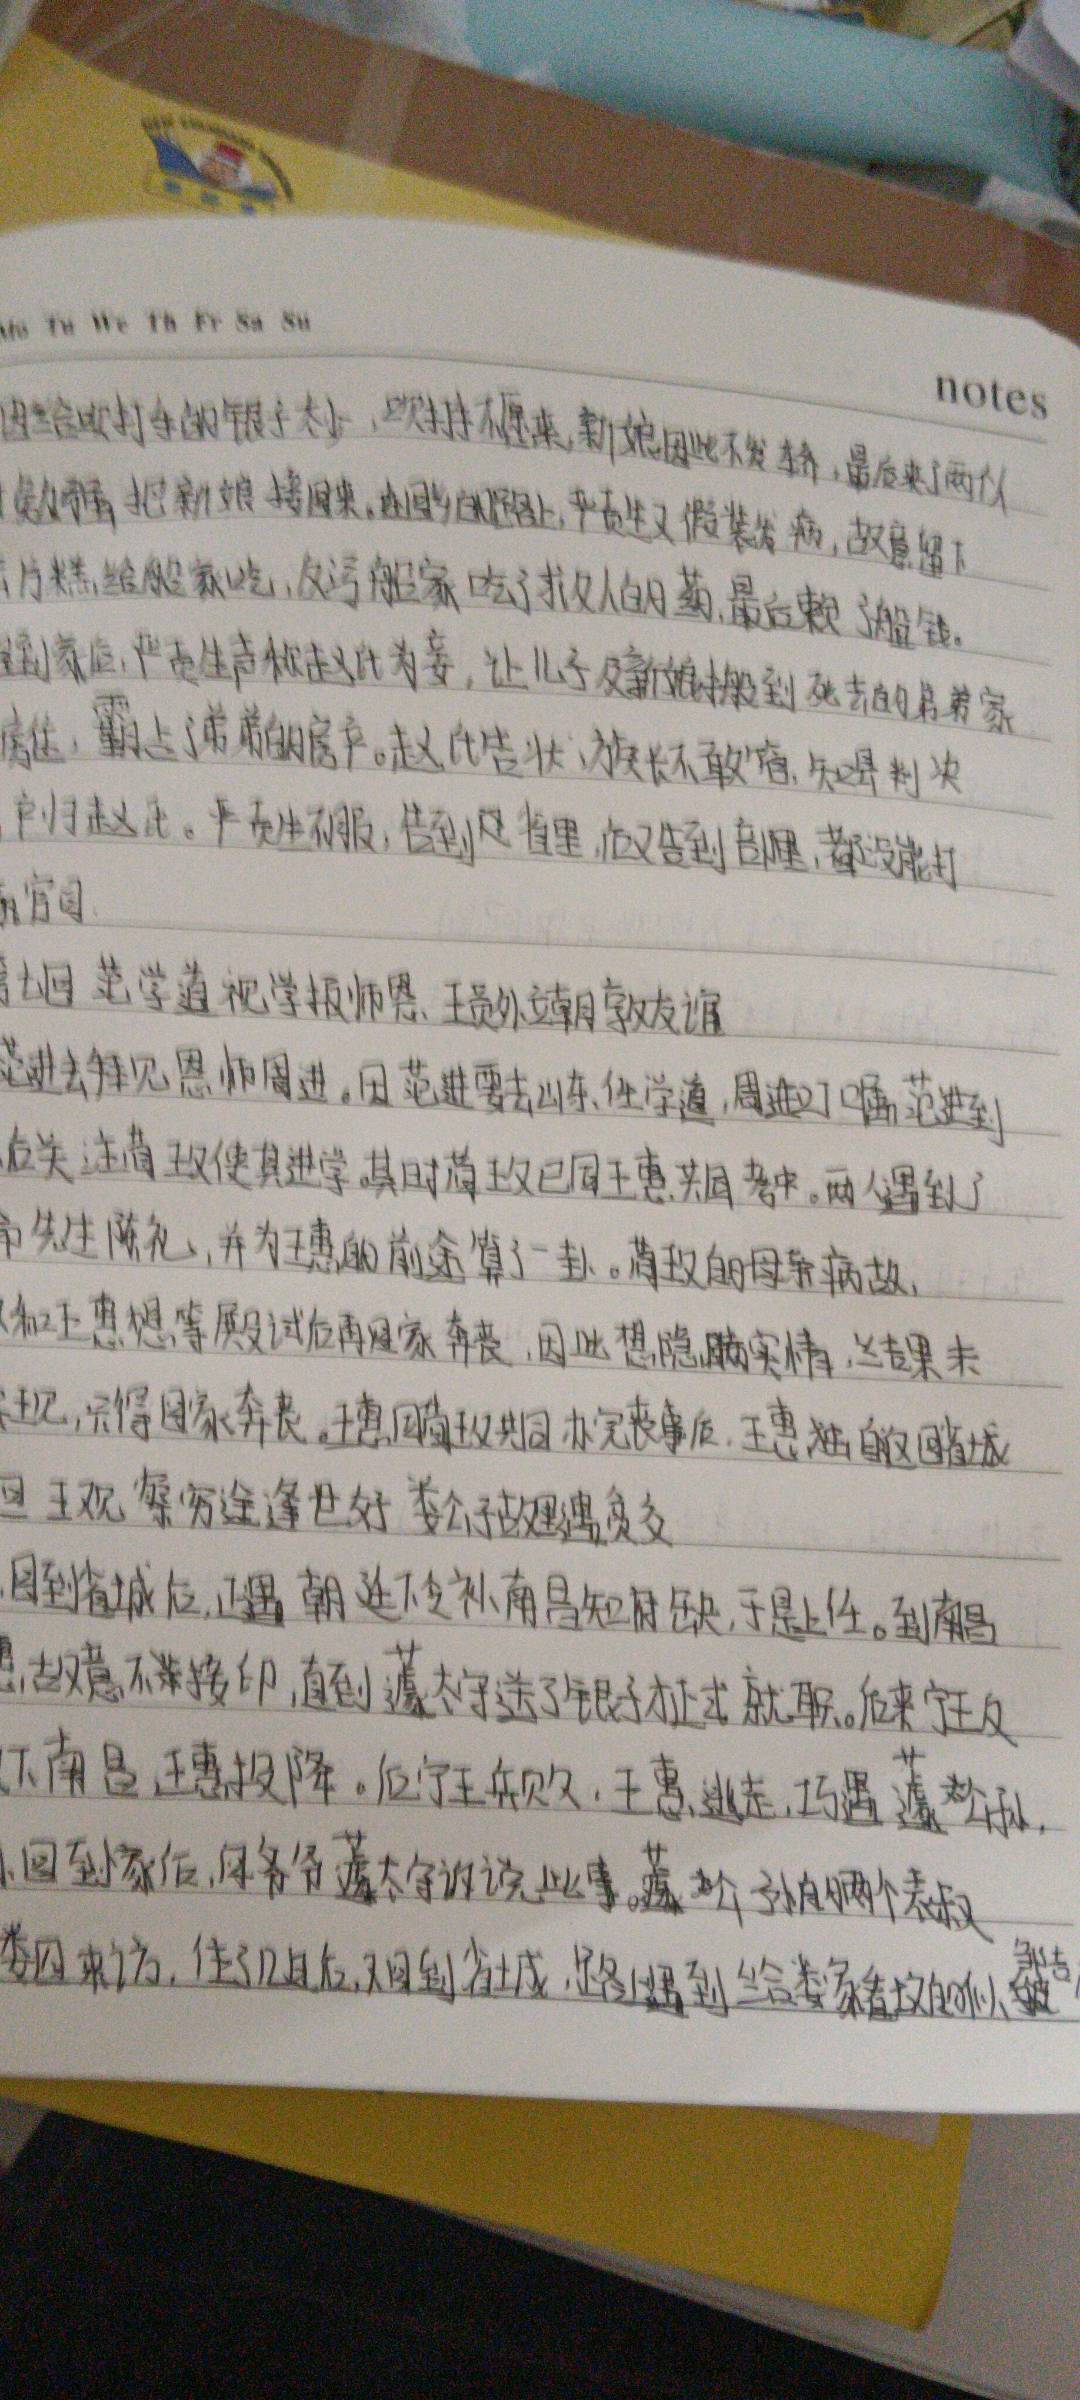 Tu We Th Fr Sa Su
notes
因给吹打手的银子太少,吹打手不愿来,新娘因此不发轿,最后来了两个
把新娘接回来。在回乡的路上,严贡生又假装发病,故意留下
片糕给船家吃,反污船家吃了救人的药,最后赖了船钱。
到家后,严贡生声称赵氏为妾,让儿子及新娘搬到死去的弟弟家
住,霸占了弟弟的房产。赵氏告状,族长不敢管,知县判决
产归赵氏。严贡生不服,告到省里,后又告到部里,都没能打
官司
第七回 范学道视学报师恩 王员外立朝敦友谊
范进去拜见恩师周进。因范进要去山东任学道,周进叮嘱范进到
后关注荀玫使其进学。其时荀玫已同王惠共同考中。两人遇到了
先生陈礼,并为王惠的前途算了一卦。荀玫的母亲病故,
和王惠想等殿试后再回家奔丧,因此想隐瞒实情,结果未
只得回家奔丧。王惠同荀玫共同办完丧事后,王惠独自返回省城
回 王观察穷途逢世好 娄公子故里遇贫交
回到省城后,正遇朝廷下令补南昌知府缺,于是上任。到南昌
故意不接印,直到蘧太守送了银子才正式就职。后来宁王反
下南昌,王惠投降。后宁王兵败,王惠逃走,巧遇蘧公孙,
回到家后,同爷爷蘧太守诉说此事。蘧公孙的两个表叔
娄四来访,住了几日后,又回到省城,路上遇到给娄家看坟的邹